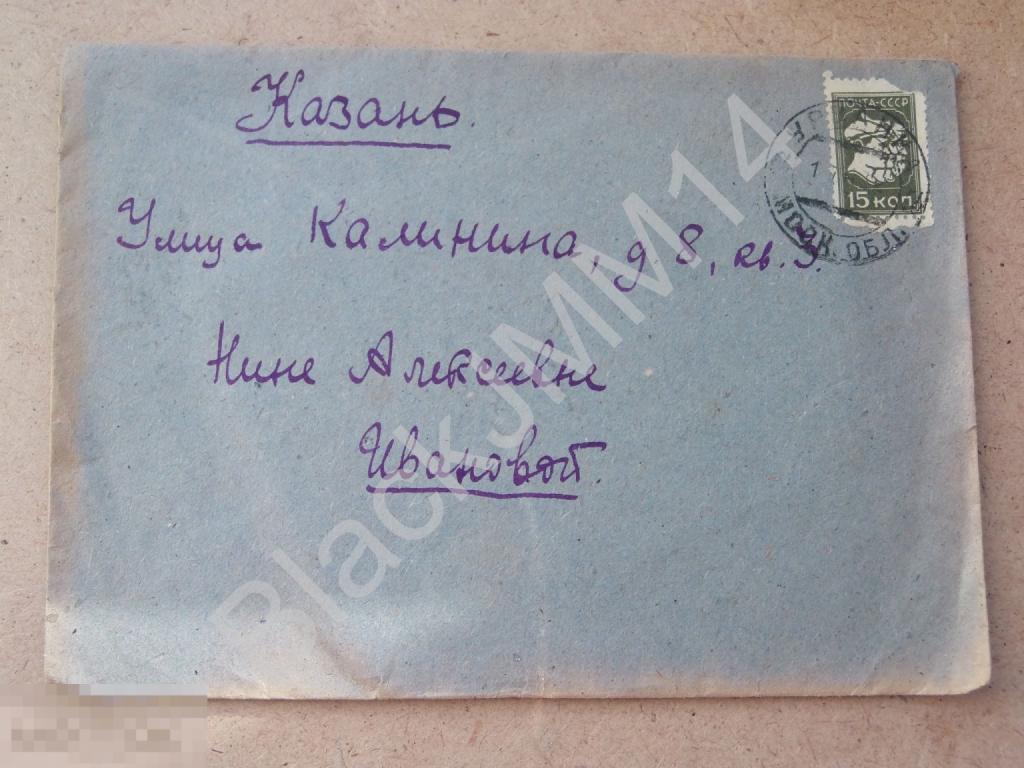 Казань.
ПОЧТА-СССР
15 коп.
МОСК. ОБЛ.
Улица Калинина, д 8, кв. 3.
Нине Алексеевне
Ивановой.
BlackJMM14